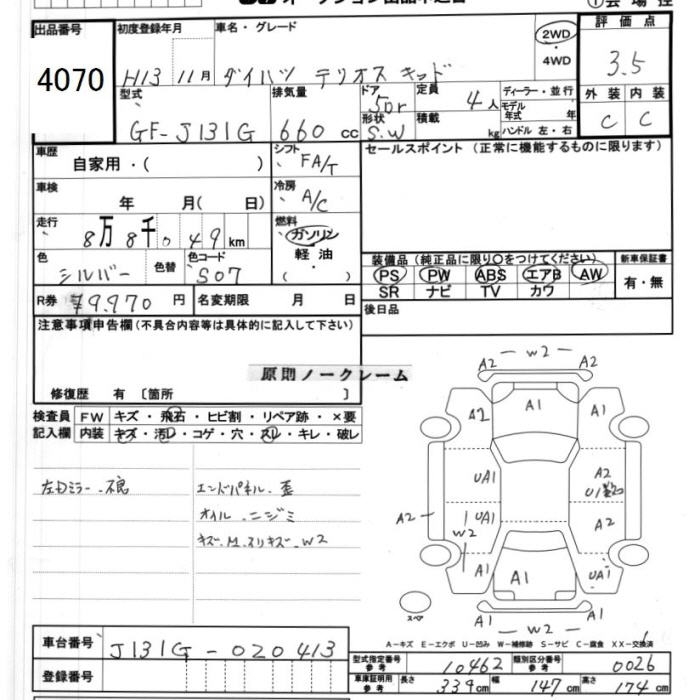 出品番号 初度登録年月 車名・グレード 評価点
4070 H13 11月 ダイハツ テリオスキッド 2WD・4WD 3.5
型式 排気量 ドア 定員 ディーラー・並行 外装 内装
GF-J131G 660cc 5Dr 4人 モデル年式 年 C C
形状 S.W 積載 kg ハンドル 左・右
車歴 自家用・( ) シフト FA/T セールスポイント(正常に機能するものに限ります)
車検 年 月( 日) 冷房 A/C
走行 8万8千049km 燃料 ガソリン 軽油・( )
色 シルバー 色替 色コード S07
装備品(純正品に限り○をつけてください) 新車保証書
PS PW ABS エアB AW 有・無
SR ナビ TV カワ
R券 ¥9,970円 名変期限 月 日 後日品
注意事項申告欄(不具合内容等は具体的に記入して下さい)
原則ノークレーム
修復歴 有〔箇所 〕
検査員 FW キズ・飛石・ヒビ割・リペア跡・×要
記入欄 内装 キズ・汚レ・コゲ・穴・スレ・キレ・破レ
左Dミラー.不良 エンドパネル.歪
オイル.ニジミ
キズ.M.スリキズ.W2
A2 W2 A2
A2 A1 A1
UA1 A2
A2 UA1 A2
W2
A1 A1 UA1
スペア
A1 W2 A1
A-キズ E-エクボ U-凹み W-補修跡 S-サビ C-腐食 XX-交換済
車台番号 J131G-020413
登録番号
型式指定番号 参考 10462 類別区分番号 参考 0026
車庫証明用 参考 長さ 339cm 幅 147cm 高さ 174cm